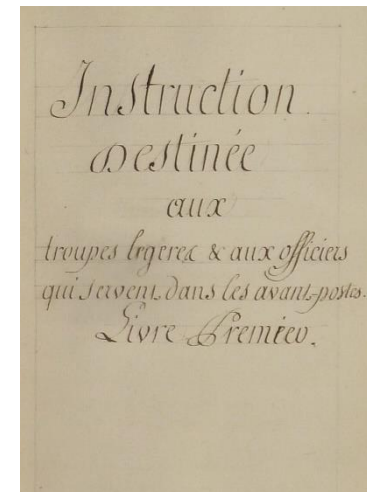 Instruction.
Destinée
aux
troupes legeres & aux officiers
qui servent dans les avant-postes.
Livre Premier.